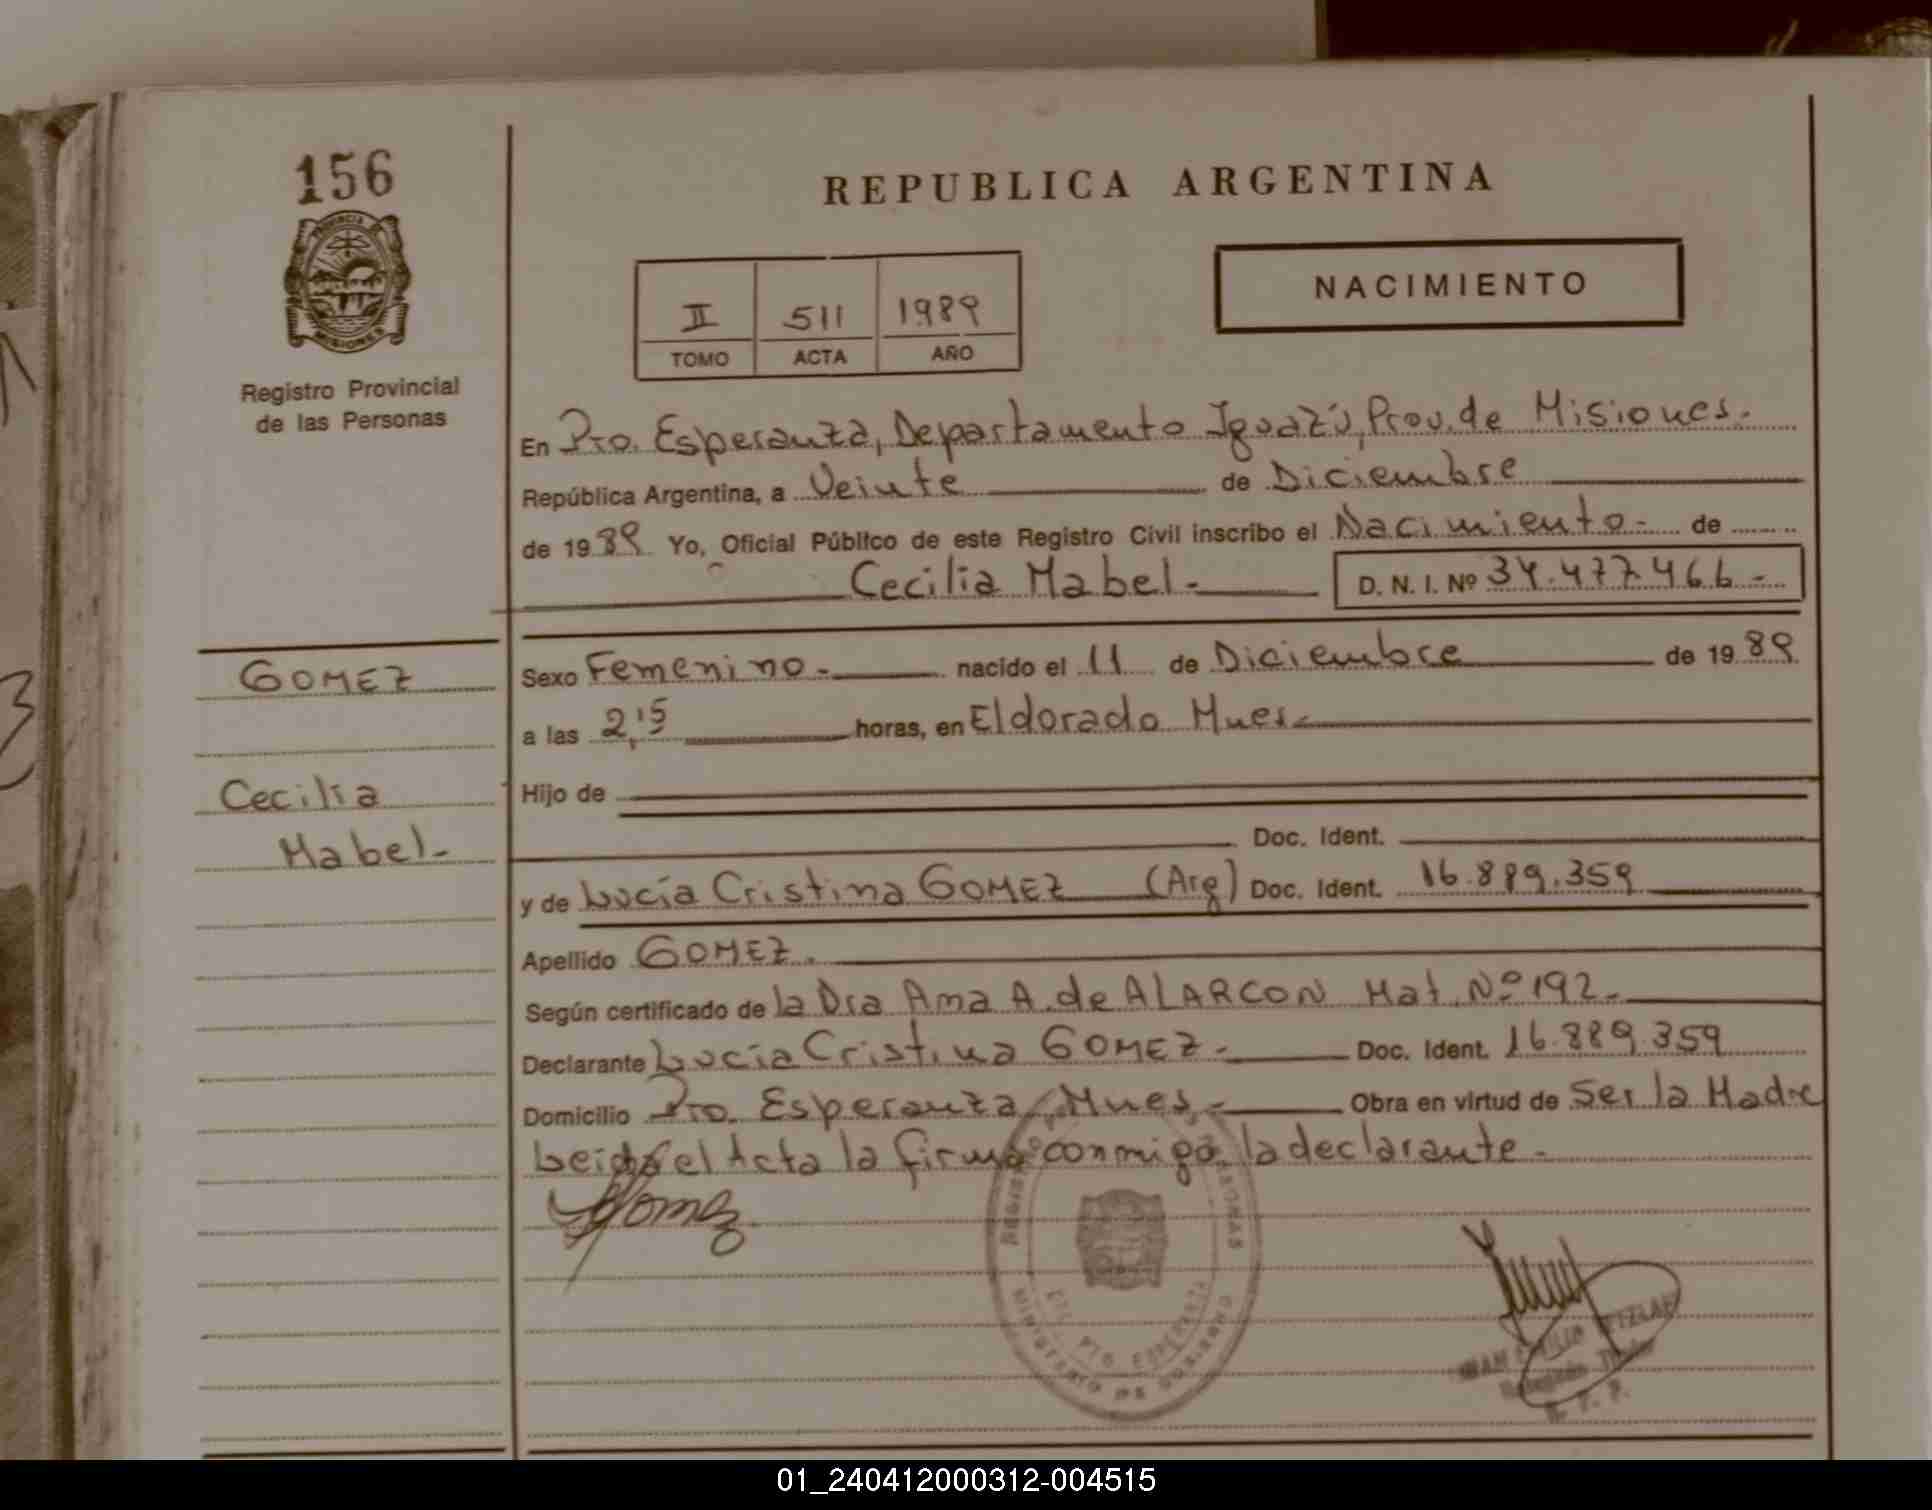 156
PROVINCIA
MISIONES
Registro Provincial
de las Personas
REPUBLICA ARGENTINA
II 511 1989
TOMO ACTA AÑO
NACIMIENTO
En Pto. Esperanza, Departamento Iguazú, Prov. de Misiones.
República Argentina, a Veinte de Diciembre
de 1989 Yo, Oficial Público de este Registro Civil inscribo el Nacimiento- de
Cecilia Mabel- D. N. I. Nº 34.477.466-
GOMEZ
Cecilia
Mabel-
Sexo Femenino- nacido el 11 de Diciembre de 1989
a las 2,15 horas, en Eldorado Mnes-
Hijo de
Doc. Ident.
y de Lucía Cristina GOMEZ (Arg) Doc. Ident. 16.889.359
Apellido GOMEZ.
Según certificado de la Dra Ama A. de ALARCON Mat. Nº 192-
Declarante Lucía Cristina GOMEZ- Doc. Ident. 16.889.359
Domicilio Pto. Esperanza, Mnes- Obra en virtud de Ser la Madre
Leida el Acta la firma conmigo la declarante-
Gomez
REGISTRO PERSONAS
PTO ESPERANZA
MINISTERIO DE GOBIERNO
Delegado Titular
R. P. P.
01_240412000312-004515